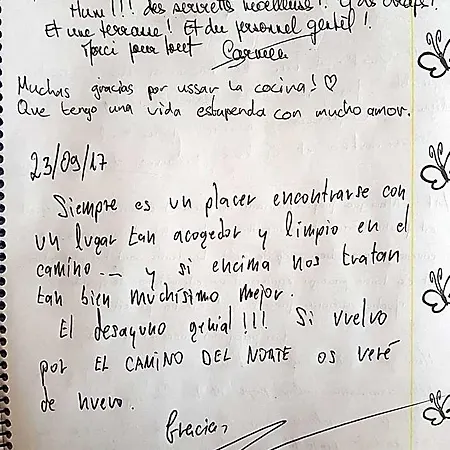 Hum!!! des serviettes moelleuses!! Y'as
Et une terrasse! Et du personnel gentil!
Merci pour tout Carmen
Muchas gracias por ussar la cocina! ♡
Que tengo una vida estupenda con mucho amor.
23/09/17
Siempre es un placer encontrarse con
un lugar tan acogedor y limpio en el
camino... y si encima nos tratan
tan bien muchísimo mejor.
El desayuno genial!!! Si vuelvo
por EL CAMINO DEL NORTE os veré
de nuevo.
Gracias